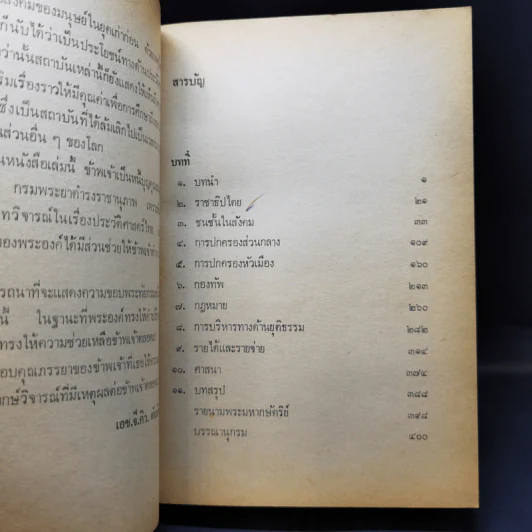 สังคมของมนุษย์ในยุคเก่าก่อน
ก็นับได้ว่าเป็นประโยชน์ทางด้าน
ว่านั้นสถาบันเหล่านี้ก็ยังแสดงให้เห็น
ริมเรื่องราวให้มีคุณค่าเพื่อการศึกษา
ซึ่งเป็นสถาบันที่ได้ล้มเลิกไป
นส่วนอื่น ๆ ของโลก
นหนังสือเล่มนี้ ข้าพเจ้าเป็นหนี้บุญคุณ
กรมพระยาดำรงราชานุภาพ
ทวิจารณ์ในเรื่องประวัติศาสตร์ไทย
ของพระองค์ได้มีส่วนช่วยให้ข้าพเจ้า
รถนาที่จะแสดงความขอบพระทัย
นี้ ในฐานะที่พระองค์ทรงให้
ทรงให้ความช่วยเหลือข้าพเจ้าตลอดมา
อบคุณภรรยาของข้าพเจ้าที่เธอให้ความ
ักษ์วิจารณ์ที่มีเหตุผลต่อข้าพเจ้า
เอช.จี.คิว.
สารบัญ
บทที่
๑. บทนำ ๑
๒. ราชาธิปไตย ๒๑
๓. ชนชั้นในสังคม ๓๓
๔. การปกครองส่วนกลาง ๑๐๙
๕. การปกครองหัวเมือง ๑๖๐
๖. กองทัพ ๒๑๓
๗. กฎหมาย ๒๖๐
๘. การบริหารทางด้านยุติธรรม ๒๘๒
๙. รายได้และรายจ่าย ๓๑๔
๑๐. ศาสนา ๓๗๔
๑๑. บทสรุป ๓๘๘
รายนามพระมหากษัตริย์ ๓๙๘
บรรณานุกรม ๔๐๐